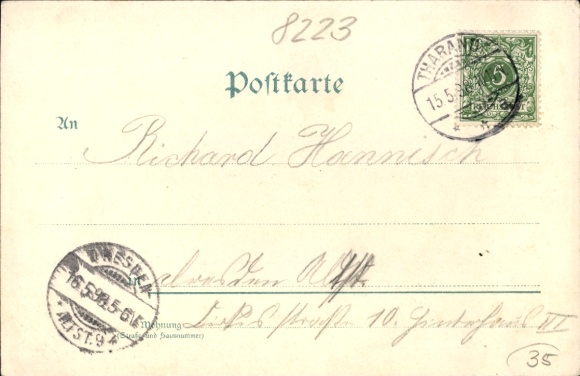 8223
Postkarte
THARANDT
15.5.98
5
An
Richard Hannisch
in Dresden Altst.
DRESDEN
16.5.98.5-6V.
ALTST.9
Wohnung
(Straße und Hausnummer)
straße 10. Hinterhaus III
35